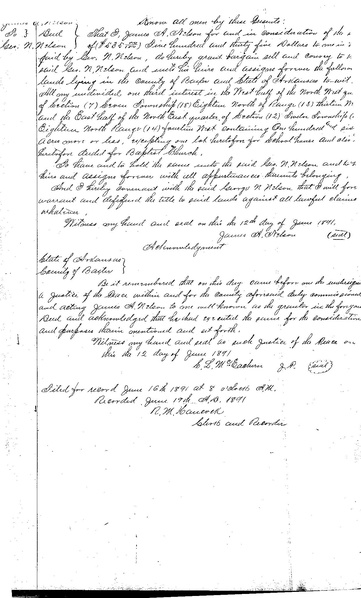 James A. Nelson Know all men by these Presents:
To } Deed } That I, James A. Nelson for and in consideration of the s
Geo. N. Nelson of ($535.00) Five hundred and thirty five Dollars to me in
paid by Geo. N. Nelson, do hereby grant bargain sell and convey to
said Geo. N. Nelson and unto his heirs and assigns forever the follow
lands lying in the County of Baxter and State of Arkansas to wit.
All my undivided, one third interest in the West half of the North West qr
of Section (7) Seven Township (18) Eighteen North of Range (13) thirteen W
and the East half of the North East quarter of Section (12) Twelve Township
Eighteen North Range (14) fourteen West containing One hundred & six
acres more or less, excepting one lot heretofore for School house and also
heretofore deeded for Baptist Church.
To have and to hold the same unto the said Geo. N. Nelson and to
heirs and assigns forever with all appurtenances thereunto belonging.
And I hereby covenant with the said George N. Nelson that I will for
warrant and defend the title to said lands against all lawful claims
whatever.
Witness my hand and seal on this the 12th day of June 1891.
James A. Nelson (seal)
Acknowledgment
State of Arkansas }
County of Baxter }
Be it remembered that on this day came before me the undersign
a Justice of the Peace within and for the County aforesaid duly commissioned
and acting James A. Nelson to me well known as the grantor in the foregoin
Deed, and acknowledged that he had executed the same for the consideration
and purposes therein mentioned and set forth.
Witness my hand and seal as such Justice of the Peace on
this the 12 day of June 1891
J.P. (seal)
Filed for record June 16th 1891 at 8 o'clock A.M.
Recorded, June 19th A.D. 1891
R. M. Hancock
Clerk and Recorder